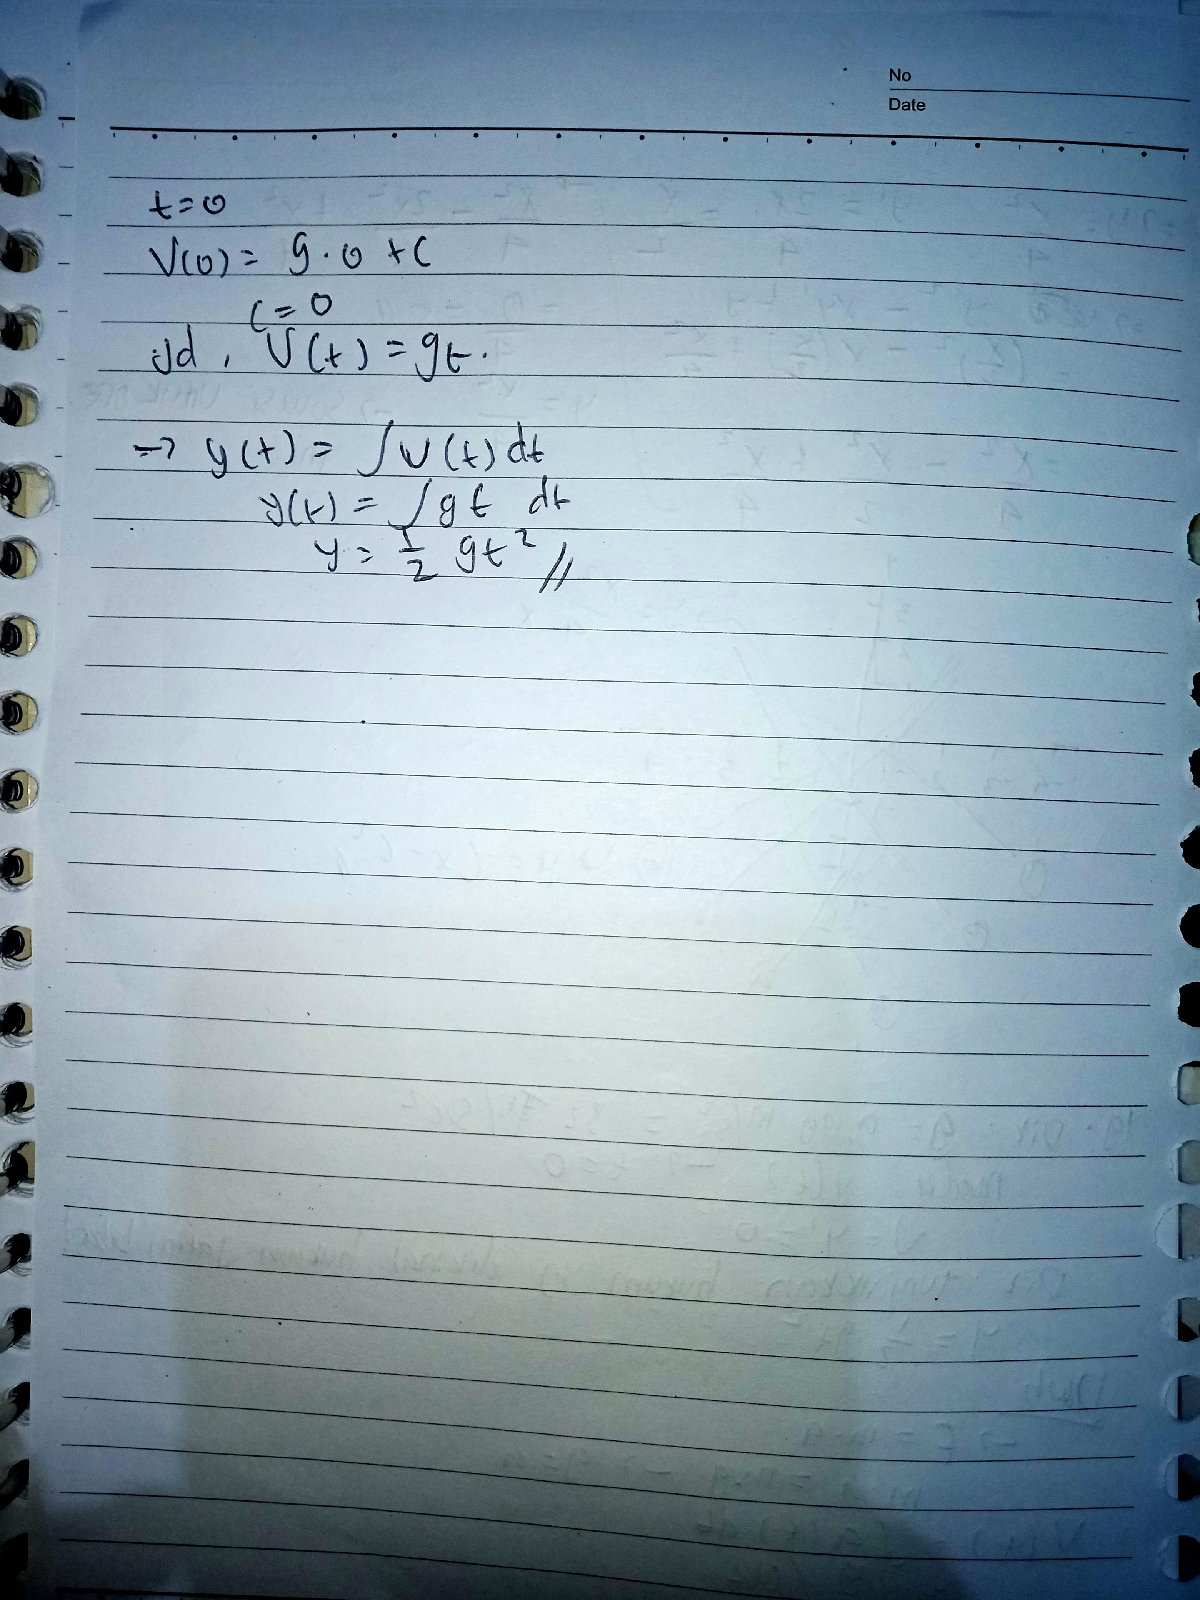 No
Date
t=0
V(0) = g.0 + C
C = 0
Jd, V(t) = gt.
→ y(t) = ∫v(t) dt
y(t) = ∫gt dt
y = 1/2 gt² //